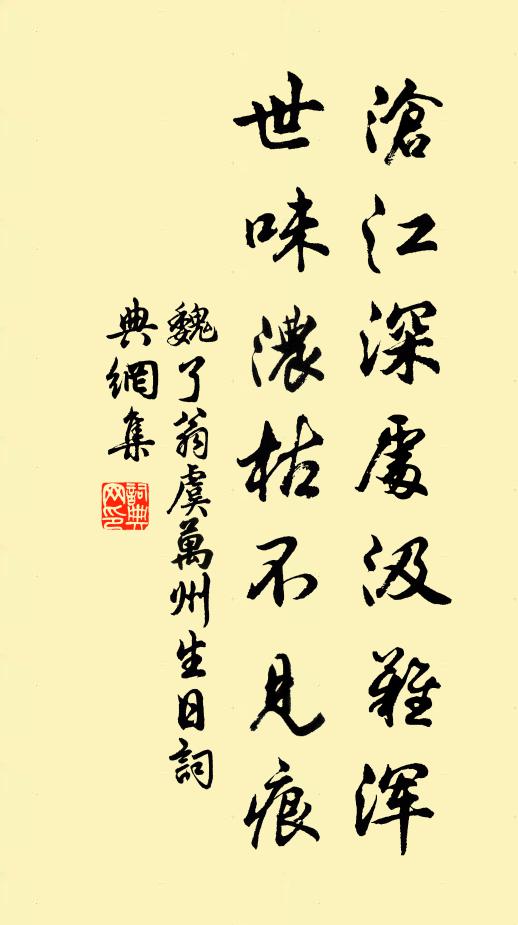 滄江深處汲難渾
世味濃枯不見痕
魏了翁虞萬州生日詞
典網集
詞典
网印